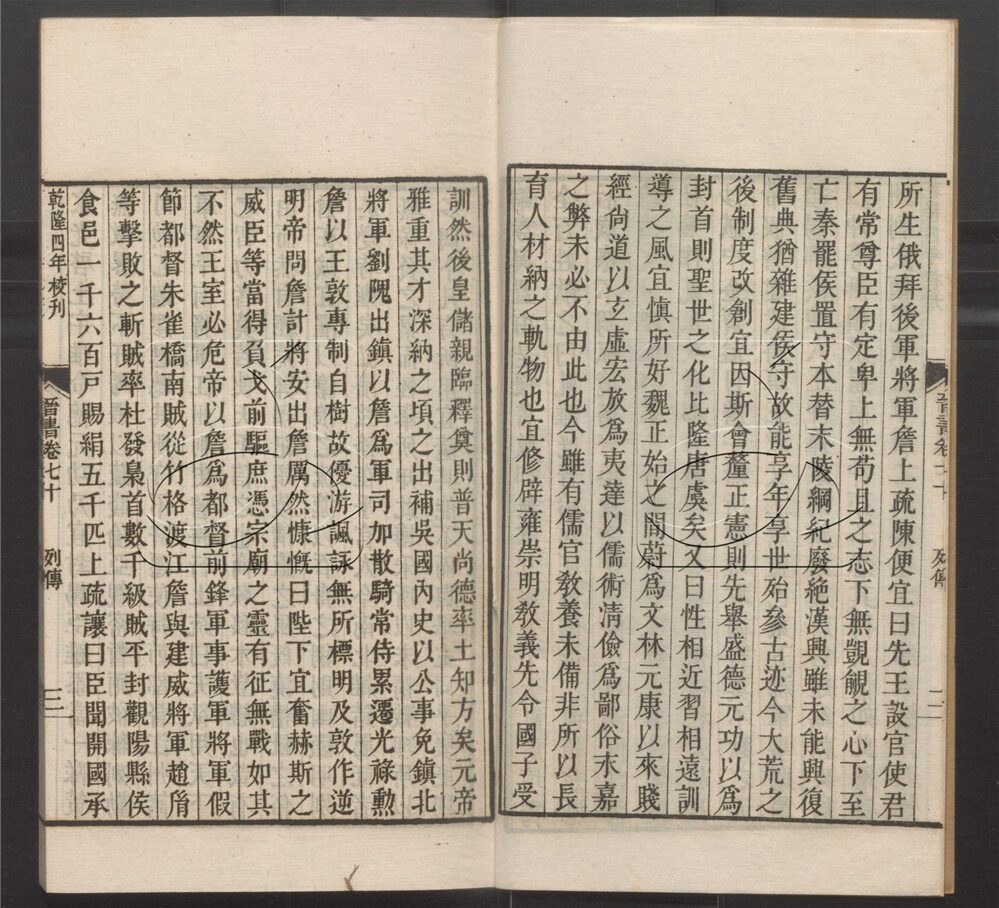 所生俄拜後軍將軍詹上疏陳便宜曰先王設官使君
有常尊臣有定卑上無苟且之志下無覬覦之心下至
亡秦罷侯置守本替末陵綱紀廢絶漢興雖未能興復
舊典猶雜建侯守故能享年享世殆參古迹今大荒之
後制度改創宜因斯會釐正憲則先舉盛德元功以爲
封首則聖世之化比隆唐虞矣又曰性相近習相遠訓
導之風宜慎所好魏正始之間蔚爲文林元康以來賤
經尚道以玄虛宏放爲夷達以儒術淸儉爲鄙俗永嘉
之弊未必不由此也今雖有儒官敎養未備非所以長
育人材納之軌物也宜修辟雍崇明敎義先令國子受
晉書卷七十
列傳
二
訓然後皇儲親臨釋奠則普天尚德率土知方矣元帝
雅重其才深納之頃之出補吳國內史以公事免鎮北
將軍劉隗出鎮以詹爲軍司加散騎常侍累遷光祿勳
詹以王敦專制自樹故優游諷詠無所標明及敦作逆
明帝問詹計將安出詹厲然慷慨曰陛下宜奮赫斯之
威臣等當得負戈前驅庶憑宗廟之靈有征無戰如其
不然王室必危帝以詹爲都督前鋒軍事護軍將軍假
節都督朱雀橋南賊從竹格渡江詹與建威將軍趙胤
等擊敗之斬賊率杜發梟首數千級賊平封觀陽縣侯
食邑一千六百戸賜絹五千匹上疏讓曰臣聞開國承
乾隆四年校刊
晉書卷七十
列傳
三